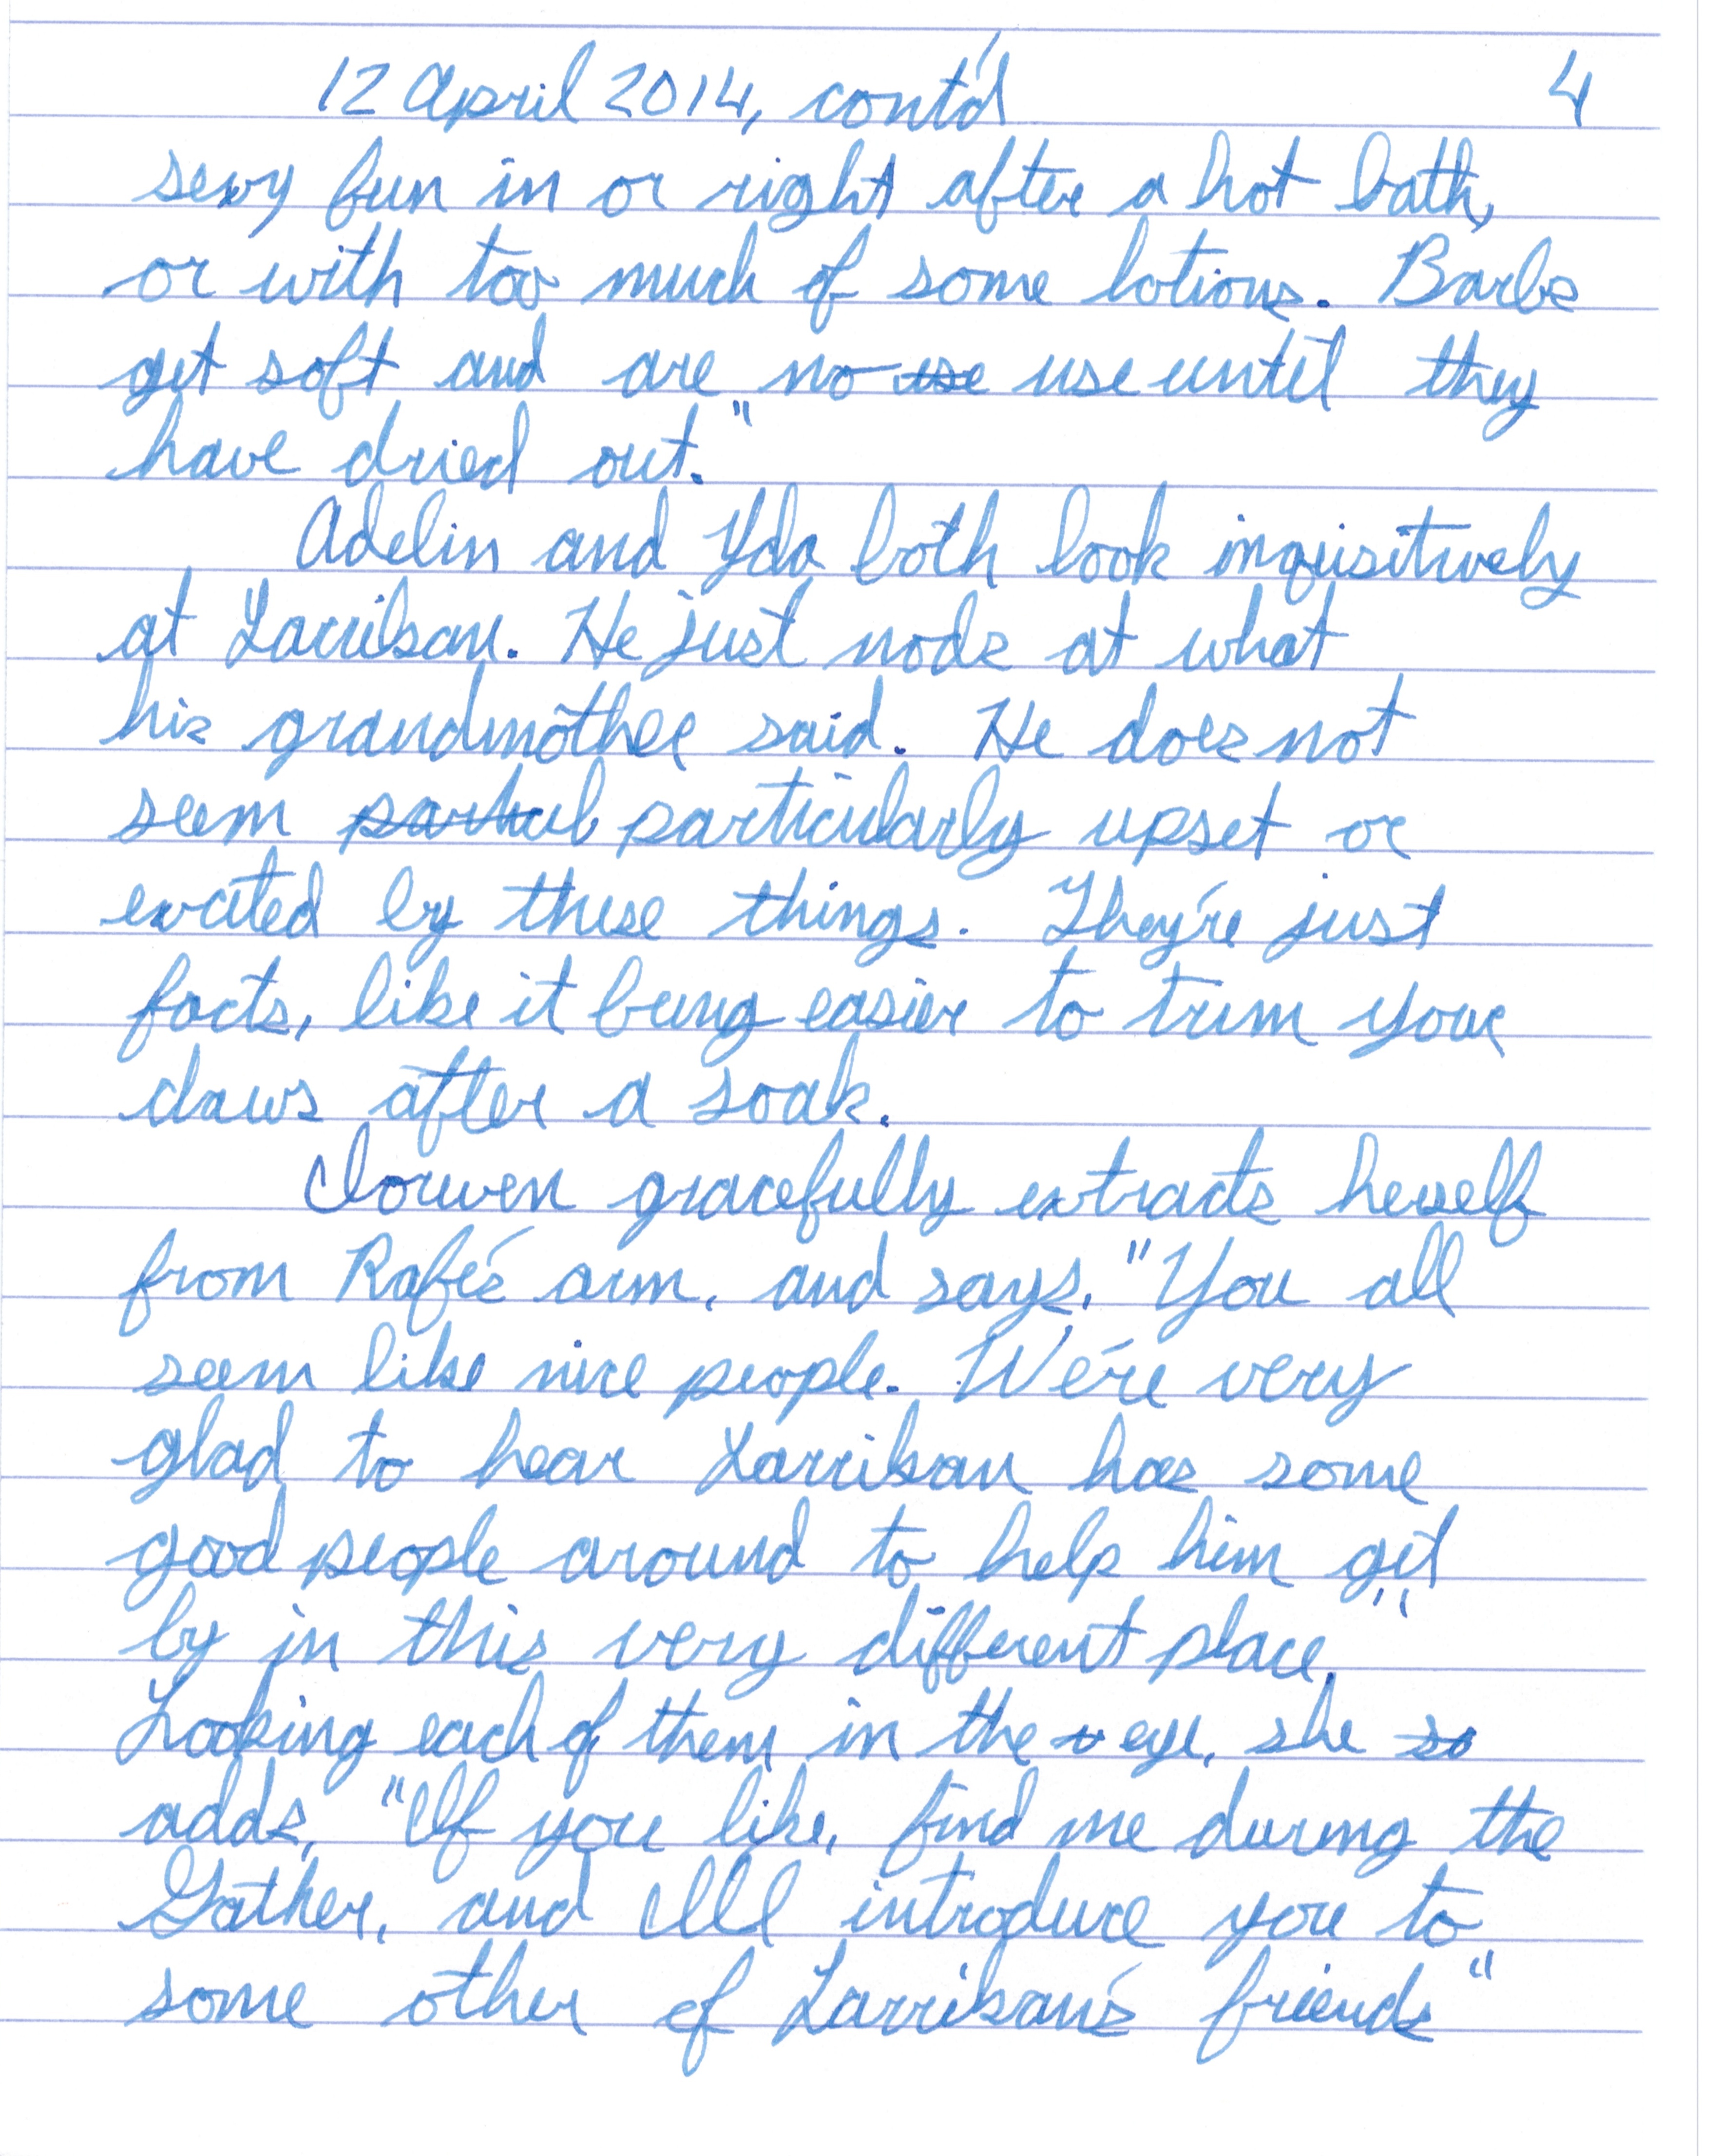 12 April 2014, cont'd 4
sexy fun in or right after a hot bath,
or with too much of some lotions. Barbs
get soft and are no use use until they
have dried out."
Adelin and Yda both look inquisitively
at Larriban. He just nods at what
his grandmother said. He does not
seem particul particularly upset or
excited by these things. They're just
facts, like it being easier to trim your
claws after a soak.
Iorwen gracefully extracts herself
from Rafe's arm, and says, "You all
seem like nice people. We're very
glad to hear Larriban has some
good people around to help him get
by in this very different place."
Looking each of them in the eye, she so
adds, "If you like, find me during the
Gather, and I'll introduce you to
some other of Larriban's friends"